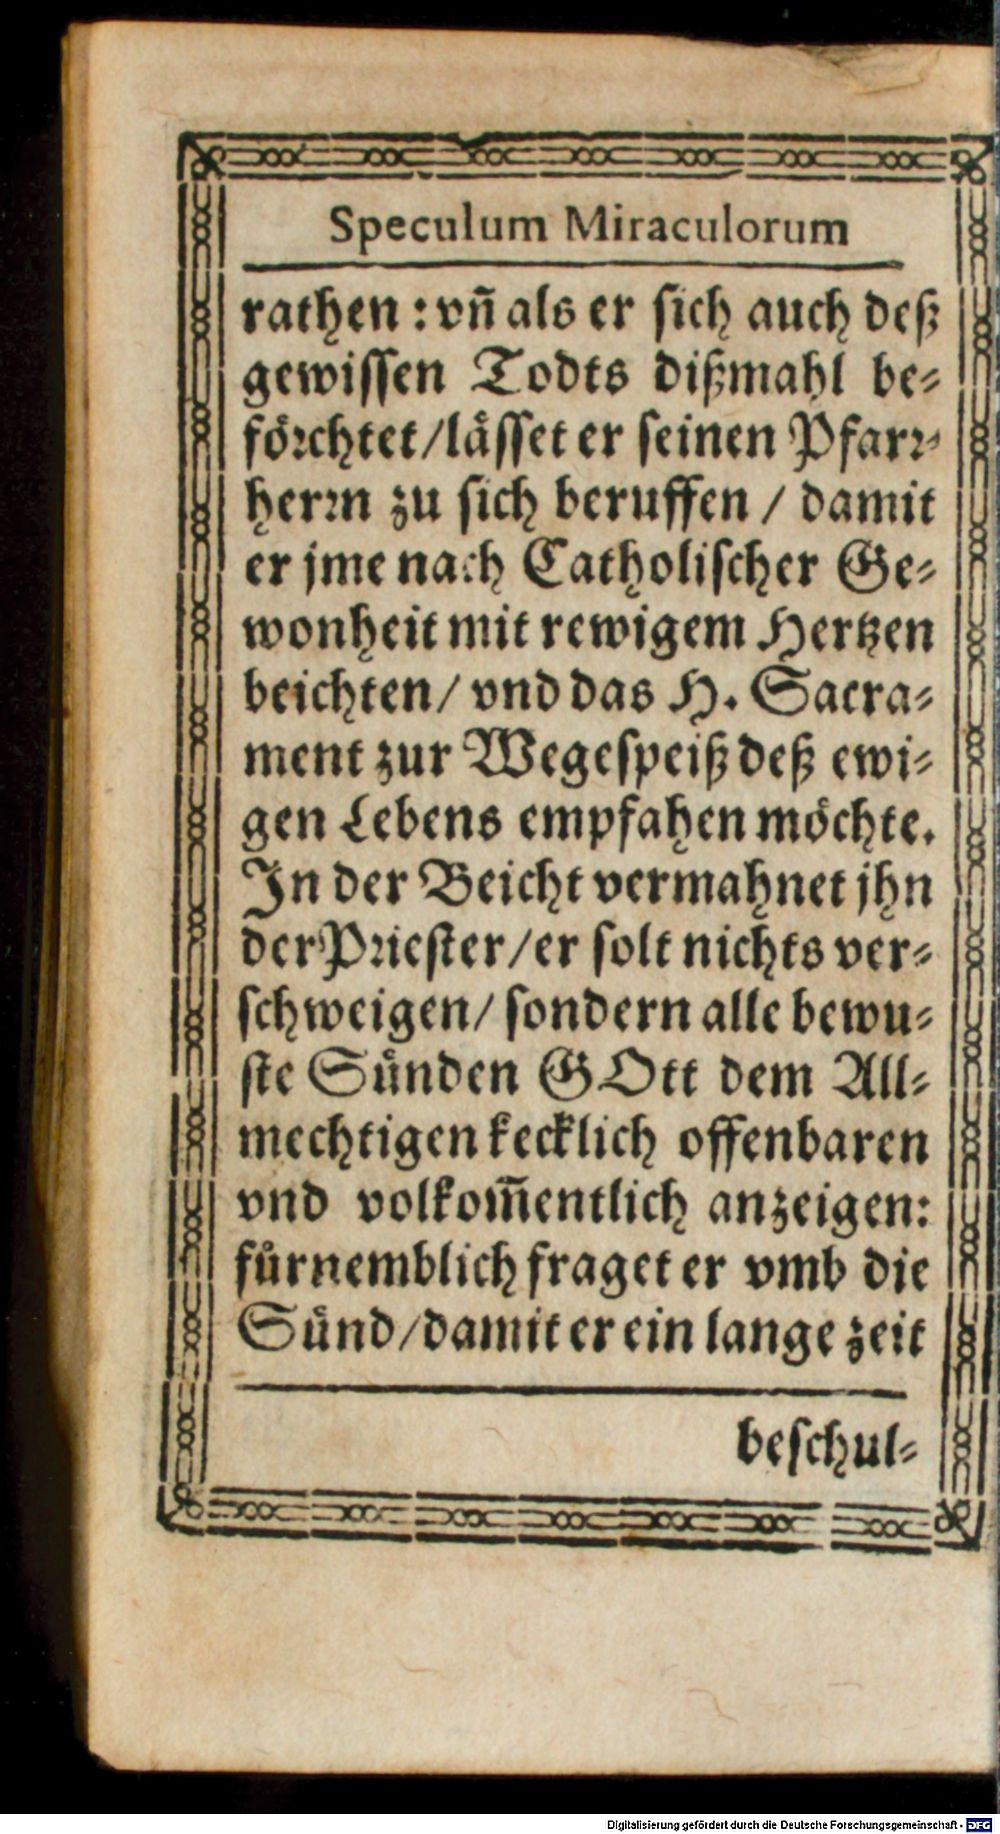 Speculum Miraculorum
rathen : vn̄ als er ſich auch deß
gewiſſen Todts dißmahl be⸗
foͤꝛchtet/laͤſſet er ſeinen Pfarꝛ⸗
herꝛn zu ſich beruffen / damit
er jme nach Catholiſcher Ge⸗
wonheit mit rewigem Hertzen
beichten/ vnd das H. Sacra⸗
ment zur Wegeſpeiß deß ewi⸗
gen Lebens empfahen moͤchte.
In der Beicht vermahnet jhn
der Pꝛieſter/er ſolt nichts ver⸗
ſchweigen/ ſondern alle bewu⸗
ſte Suͤnden GOtt dem All⸗
mechtigen kecklich offenbaren
vnd volkom̄entlich anzeigen:
fuͤrnemblich fraget er vmb die
Suͤnd/damit er ein lange zeit
beſchul⸗
Digitalisierung gefördert durch die Deutsche Forschungsgemeinschaft - DFG